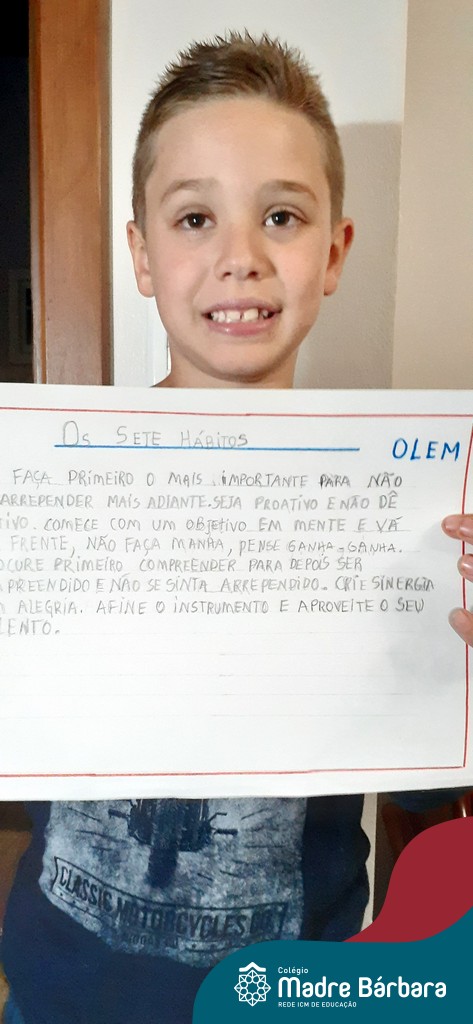 Os SETE HÁBITOS
OLEM
FAÇA PRIMEIRO O MAIS IMPORTANTE PARA NÃO
ARREPENDER MAIS ADIANTE.SEJA PROATIVO E NÃO DÊ
TIVO. COMECE COM UM OBJETIVO EM MENTE E VÁ
FRENTE, NÃO FAÇA MANHA, PENSE GANHA-GANHA.
OCURE PRIMEIRO COMPREENDER PARA DEPOIS SER
PREENDIDO E NÃO SE SINTA ARREPENDIDO. CRIE SINERGIA
ALEGRIA. AFINE O INSTRUMENTO E APROVEITE O SEU
LENTO.
CLASSIC MOTORCYCLES CO.
Colégio
Madre Bárbara
REDE ICM DE EDUCAÇÃO